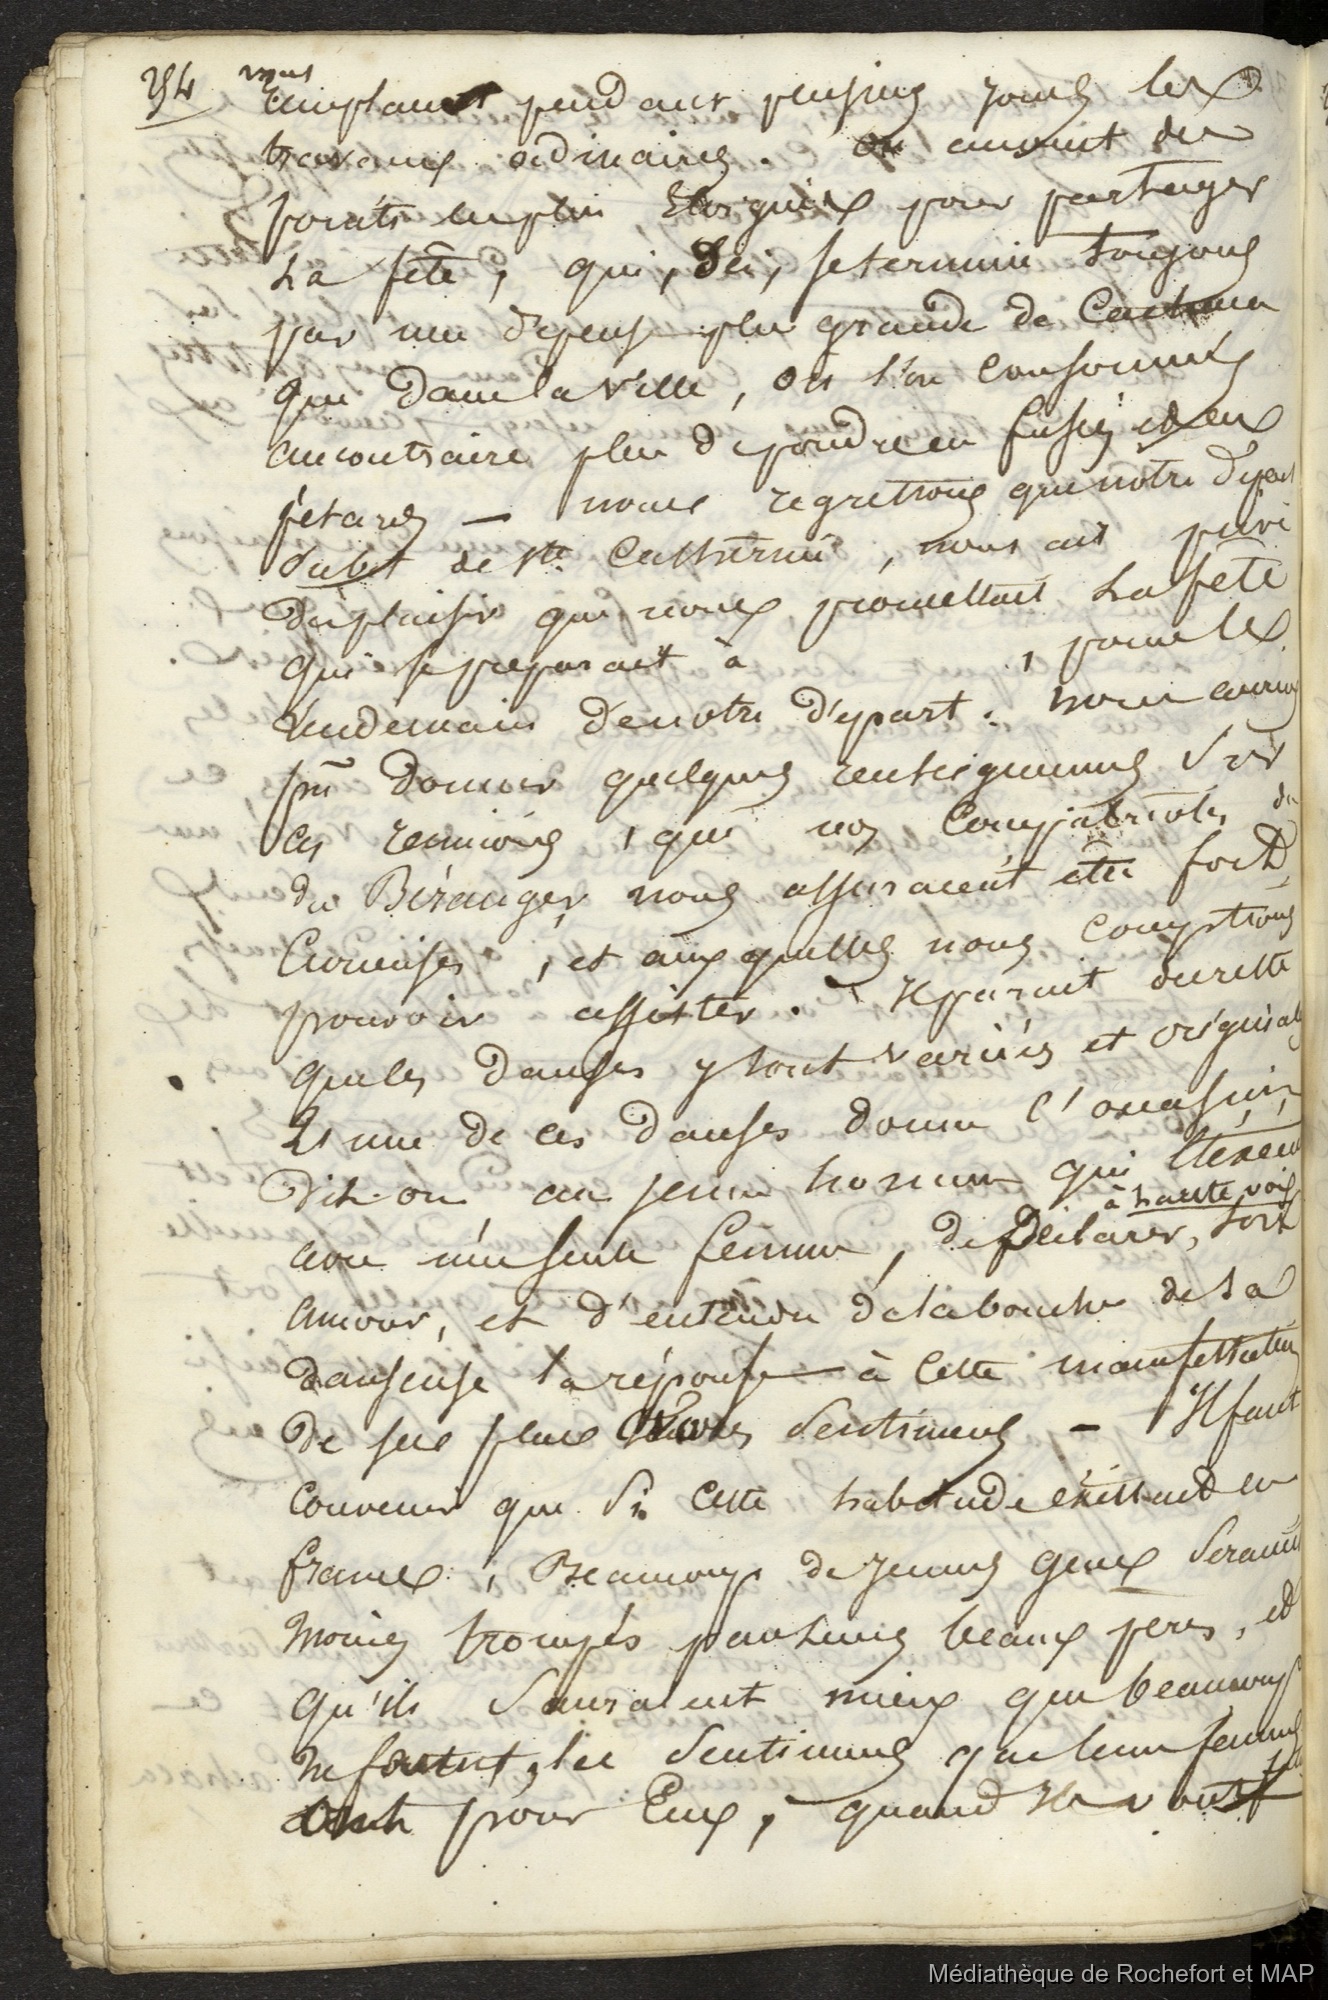 254
remplacent pendant plusieurs jours les
travaux ordinaires. on accourt des
points les plus Eloignés pour partager
La fête, qui, ici, se termine toujours
par une dépense plus grande de
que dans la ville, où l'on consomme
au contraire plus de poudre en fusées et en
pétards — nous regrettons que notre départ
subit de Ste Catherine, nous ait privé
du plaisir que nous promettait La fête
qui se préparait à , pour le
lendemain de notre départ. nous aurions
pu donner quelques renseignemens sur
ces réunions, que nos compatriotes
du Béranger, nous assuraient être fort
curieuses, et auxquelles nous comptions
pouvoir assister. Il parait du reste
que les danses y sont variées et originales
et une de ces danses donne l'occasion,
dit-on au jeune homme qui
avec une seule femme, de déclarer, à haute voix son
amour, et d'entendre de la bouche de sa
danseuse la réponse à cette manifestation
de ses plus sentimens — Il faut
convenir que si cette habitude éxistait en
france, Beaucoup de jeunes gens seraient
moins trompés par leurs beaux peres, et
qu'ils sauraient mieux que beaucoup
ne font, les sentimens que leurs femmes
ont pour Eux, quand Ils vont
Médiathèque de Rochefort et MAP